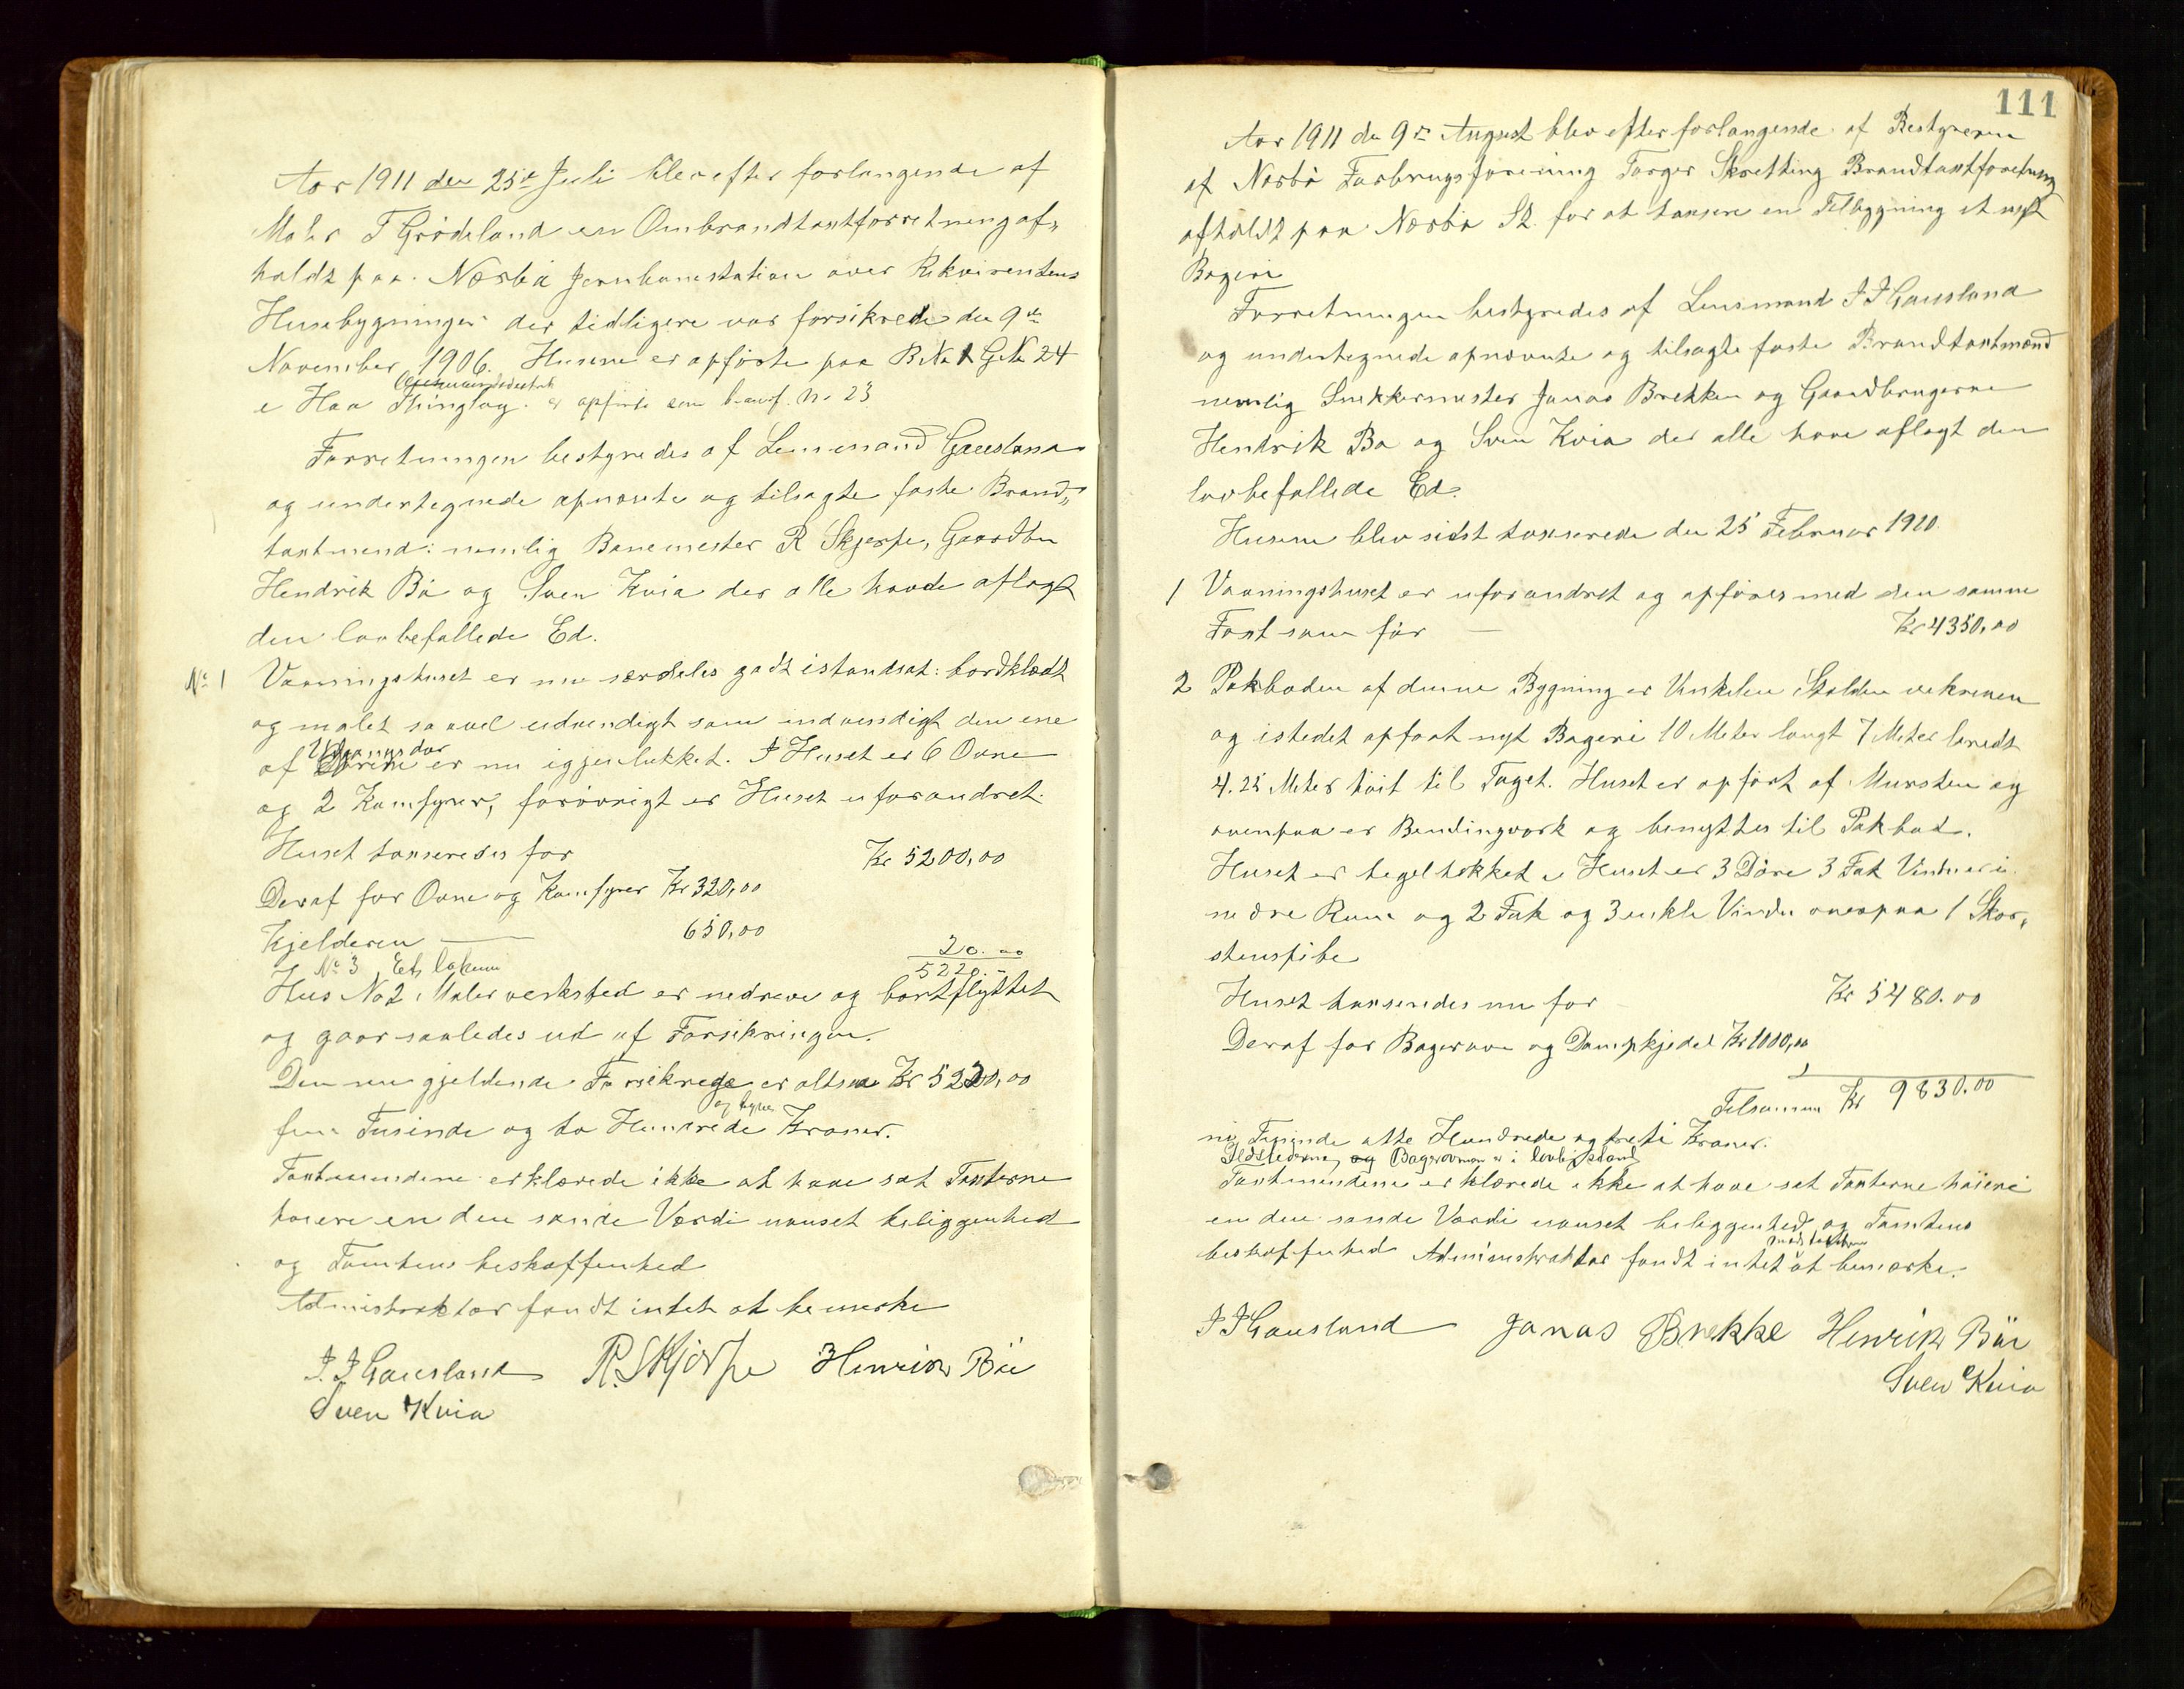 Aar 1911 den 25de Juli blev efter forlangende af
Maler T Grødeland en Ombrandtaxtforretning af„
holdt paa Nærbø Jernbanestation over Rekvirentens
Husebygninger der tidligere var forsikrede den 9de
November 1906. Husene er opførte paa B No 1 G No 24
i Haa Thinglag. er opførte som brandf. No 23
Forretningen bestyredes af Lensmand Gausland
og undertegnede opnævnte og tilsagte faste Brand„
taxtmend: nemlig Banemester R Skjerpe, Gaardbr
Hendrik Bø og Sven Kvia der alle havde aflagt
den lovbefallede Ed.
No 1 Vaaningshuset er nu særdeles godt istandsat: bordklædt
og malet saavel udvendigt som indvendigt den ene
af Udgangsdør er nu igjenlukket. I Huset er 6 Ovne
og 2 Komfyrer, forøvrigt er Huset uforandret.
Huset taxseredes for Kr 5200,00
Deraf for Ovne og Komfyrer Kr 320,00
Kjelderen 650,00
No 3 Et lokum 20.00
5220.-
Hus No 2 Malerverksted er nedreve og bortflyttet
og gaar saaledes ud af Forsikringen.
Den nu gjeldende Forsikring er altsaa Kr 5220,00
fem Tusinde og to Hundrede og tyve Kroner.
Taxtmendene erklærede ikke at have sat Taxterne
høiere en den sande Værdi uanset beliggenhed
og Tomtens beskaffenhed
Administraktor fandt intet at bemerke
J. J Gausland R. Skjerpe Henrik Bø
Sven Kvia
111
Aar 1911 den 9de August blev efter forlangende af Bestyreren
af Nærbø Forbrugsforening Torger Skretting Brandtaxtforetning
afholdt paa Nærbø St. for at taxsere en Tilbygning et nyt
Bageri
Forretningen bestyredes af Lensmand J J Gausland
og undertegnede opnævnte og tilsagte faste Brandtaxtmend
nemlig Snekkermester Jonas Brekken og Gaardbrugerne
Hendrik Bø og Sven Kvia der alle have aflagt den
lovbefallede Ed.
Husene blev sidst taxserede den 25 Februar 1910.
1 Vaaningshuset er uforandret og opføres med den samme
Taxt som før Kr 4350,00
2 Pakboden af denne Bygning er Vinkelen Stolden nedreven
og istedet opført nyt Bageri 10 Meter langt 7 Meter bredt
4.25 Meter høit til Taget. Huset er opført af Mursten og
ovenpaa er Bindingverk og benyttes til Pakbod.
Huset er tegeltekket i Huset er 3 Døre 3 Fak Vinduer i
nedre Rum og 2 Fak og 3 enkle Vindu ovenpaa 1 Skor„
stenspibe
Huset taxseredes nu for Kr 5480.00
Deraf for Bagerovn og Dampkjedel Kr 1000,00
Tilsamen Kr 9830.00
ni Tusinde otte Hundrede og treti Kroner.
Ildstederne og Bagerovnen er i lovlig stand
Taxtmendene erklærede ikke at have sat Taxterne høiere
en den sande Værdi uanset beliggenhed og Tomtens
beskaffenhed Administraktor fandt intet mod taxterne at bemærke.
J J Gausland Jonas Brekke Henrik Bø
Sven Kvia